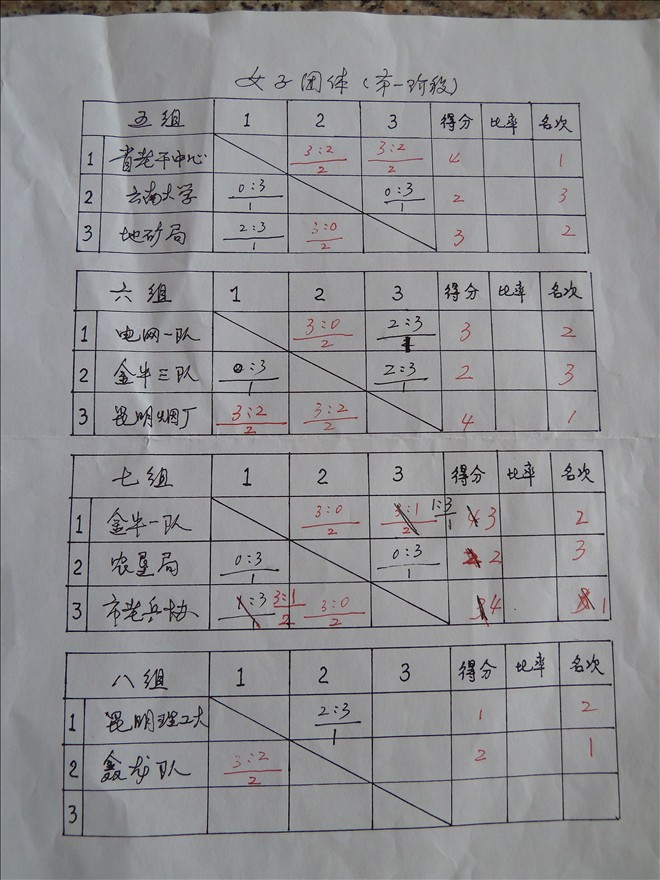 女子团体(第一阶段)
五组 1 2 3 得分 比率 名次
1 省老干中心 3:2/2 3:2/2 4 1
2 云南大学 0:3/1 0:3/1 2 3
3 地矿局 2:3/1 3:0/2 3 2
六组 1 2 3 得分 比率 名次
1 电网一队 3:0/2 2:3/1 3 2
2 金牛三队 0:3/1 2:3/1 2 3
3 昆明烟厂 3:2/2 3:2/2 4 1
七组 1 2 3 得分 比率 名次
1 金牛一队 3:0/2 3:1/2 1:3/1 3 2
2 农垦局 0:3/1 0:3/1 2 3
3 市老兵协 1:3/1 3:1/2 3:0/2 4 1
八组 1 2 3 得分 比率 名次
1 昆明理工大 2:3/1 1 2
2 鑫龙队 3:2/2 2 1
3